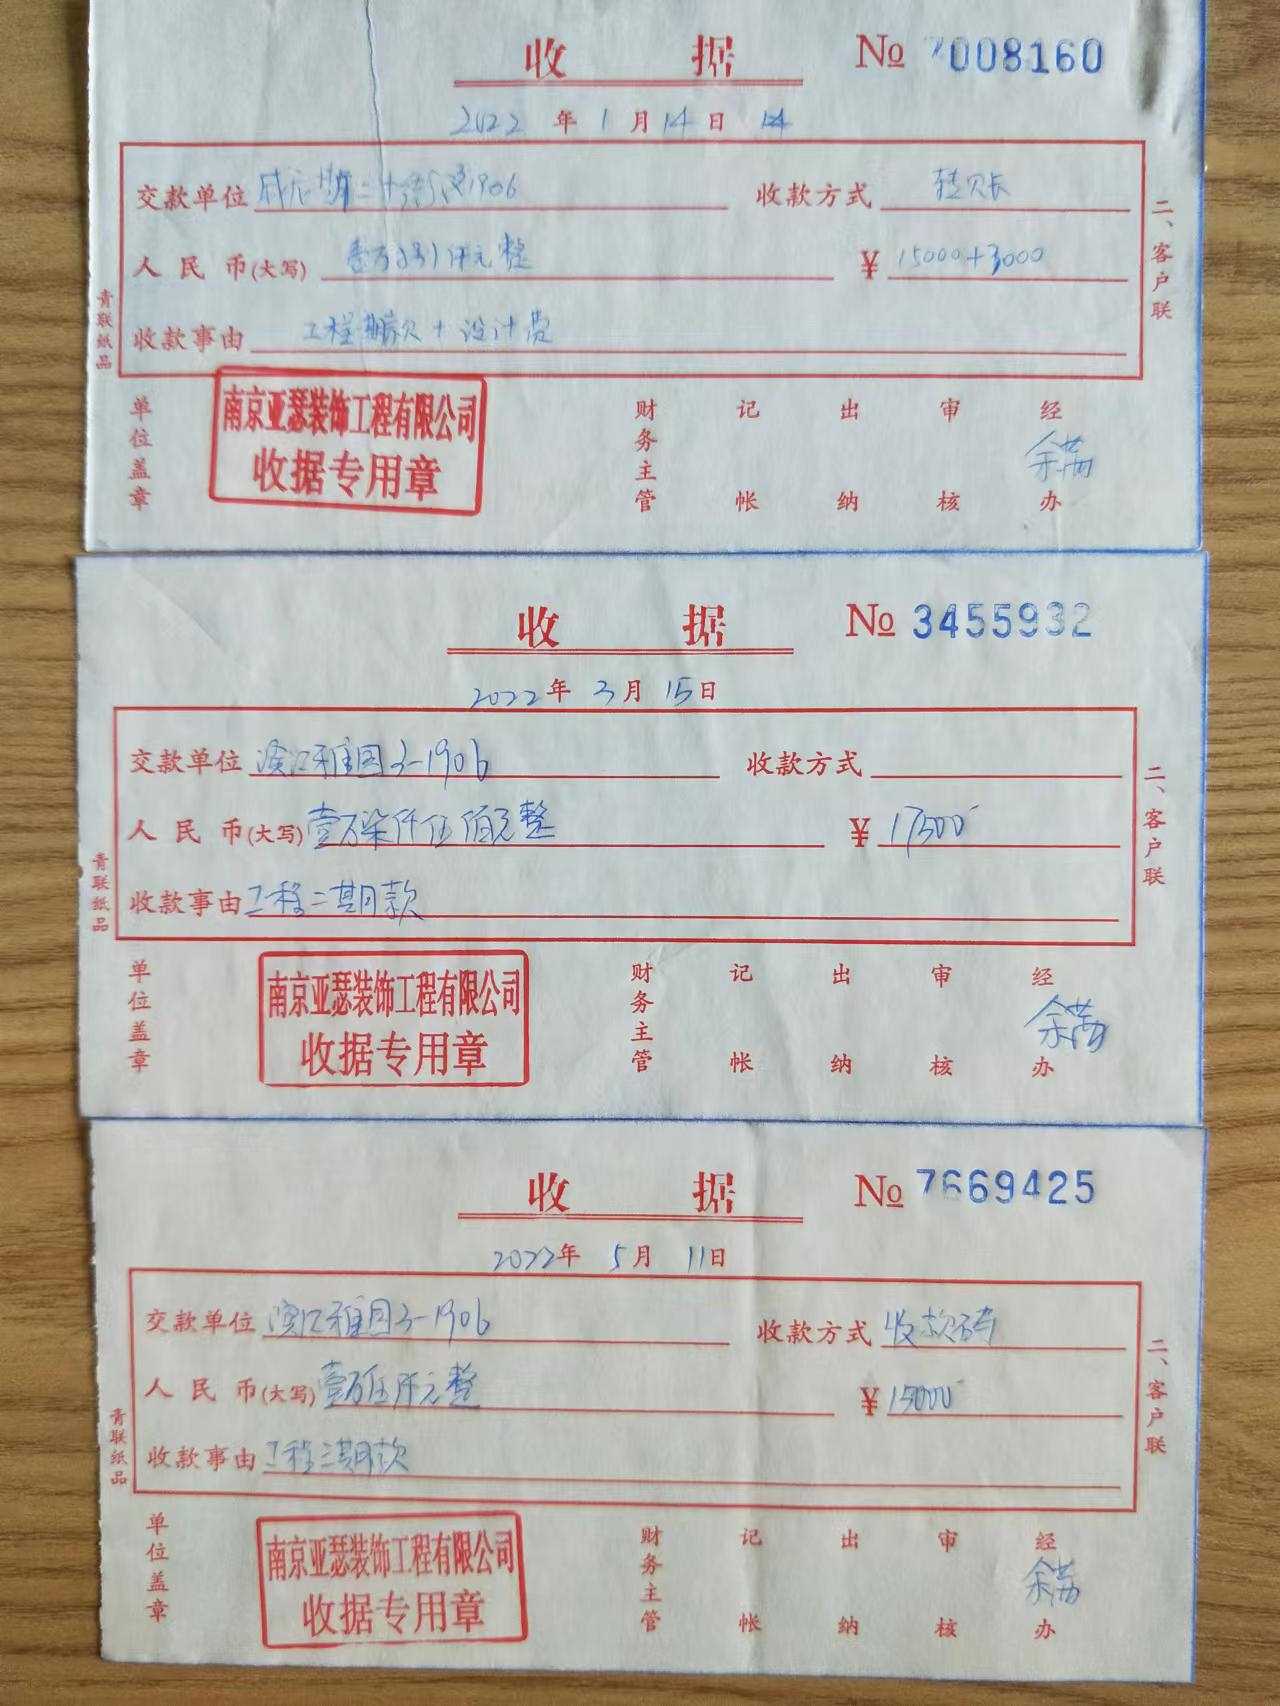 收 据 № 7008160
2022 年 1 月 14 日 14
交款单位 1906 收款方式 转账
人民币(大写) 壹万捌仟元整 ¥ 15000+3000
收款事由 工程首期款+设计费
二、客户联
青联纸品
单位盖章 南京亚瑟装饰工程有限公司
收据专用章
财务主管 记帐 出纳 审核 经办 余
收 据 № 3455932
2022 年 3 月 15 日
交款单位 滨江雅园3-1906 收款方式
人民币(大写) 壹万柒仟伍佰元整 ¥ 17500
收款事由 工程二期款
二、客户联
青联纸品
单位盖章 南京亚瑟装饰工程有限公司
收据专用章
财务主管 记帐 出纳 审核 经办 余
收 据 № 7669425
2022 年 5 月 11 日
交款单位 滨江雅园3-1906 收款方式 收款码
人民币(大写) 壹万伍仟元整 ¥ 15000
收款事由 工程三期款
二、客户联
青联纸品
单位盖章 南京亚瑟装饰工程有限公司
收据专用章
财务主管 记帐 出纳 审核 经办 余